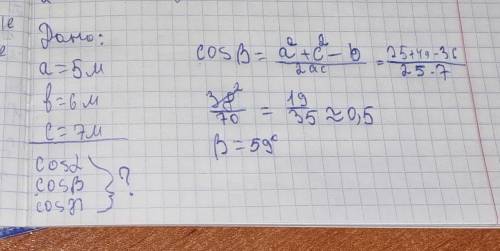 Дано:
a = 5 м
b = 6 м
c = 7 м
cosα
cosβ
cosγ
?
cosβ = a² + c² - b / 2ac = 25+49-36 / 2·5·7
38² / 70 = 19 / 35 ≈ 0,5
β = 59°